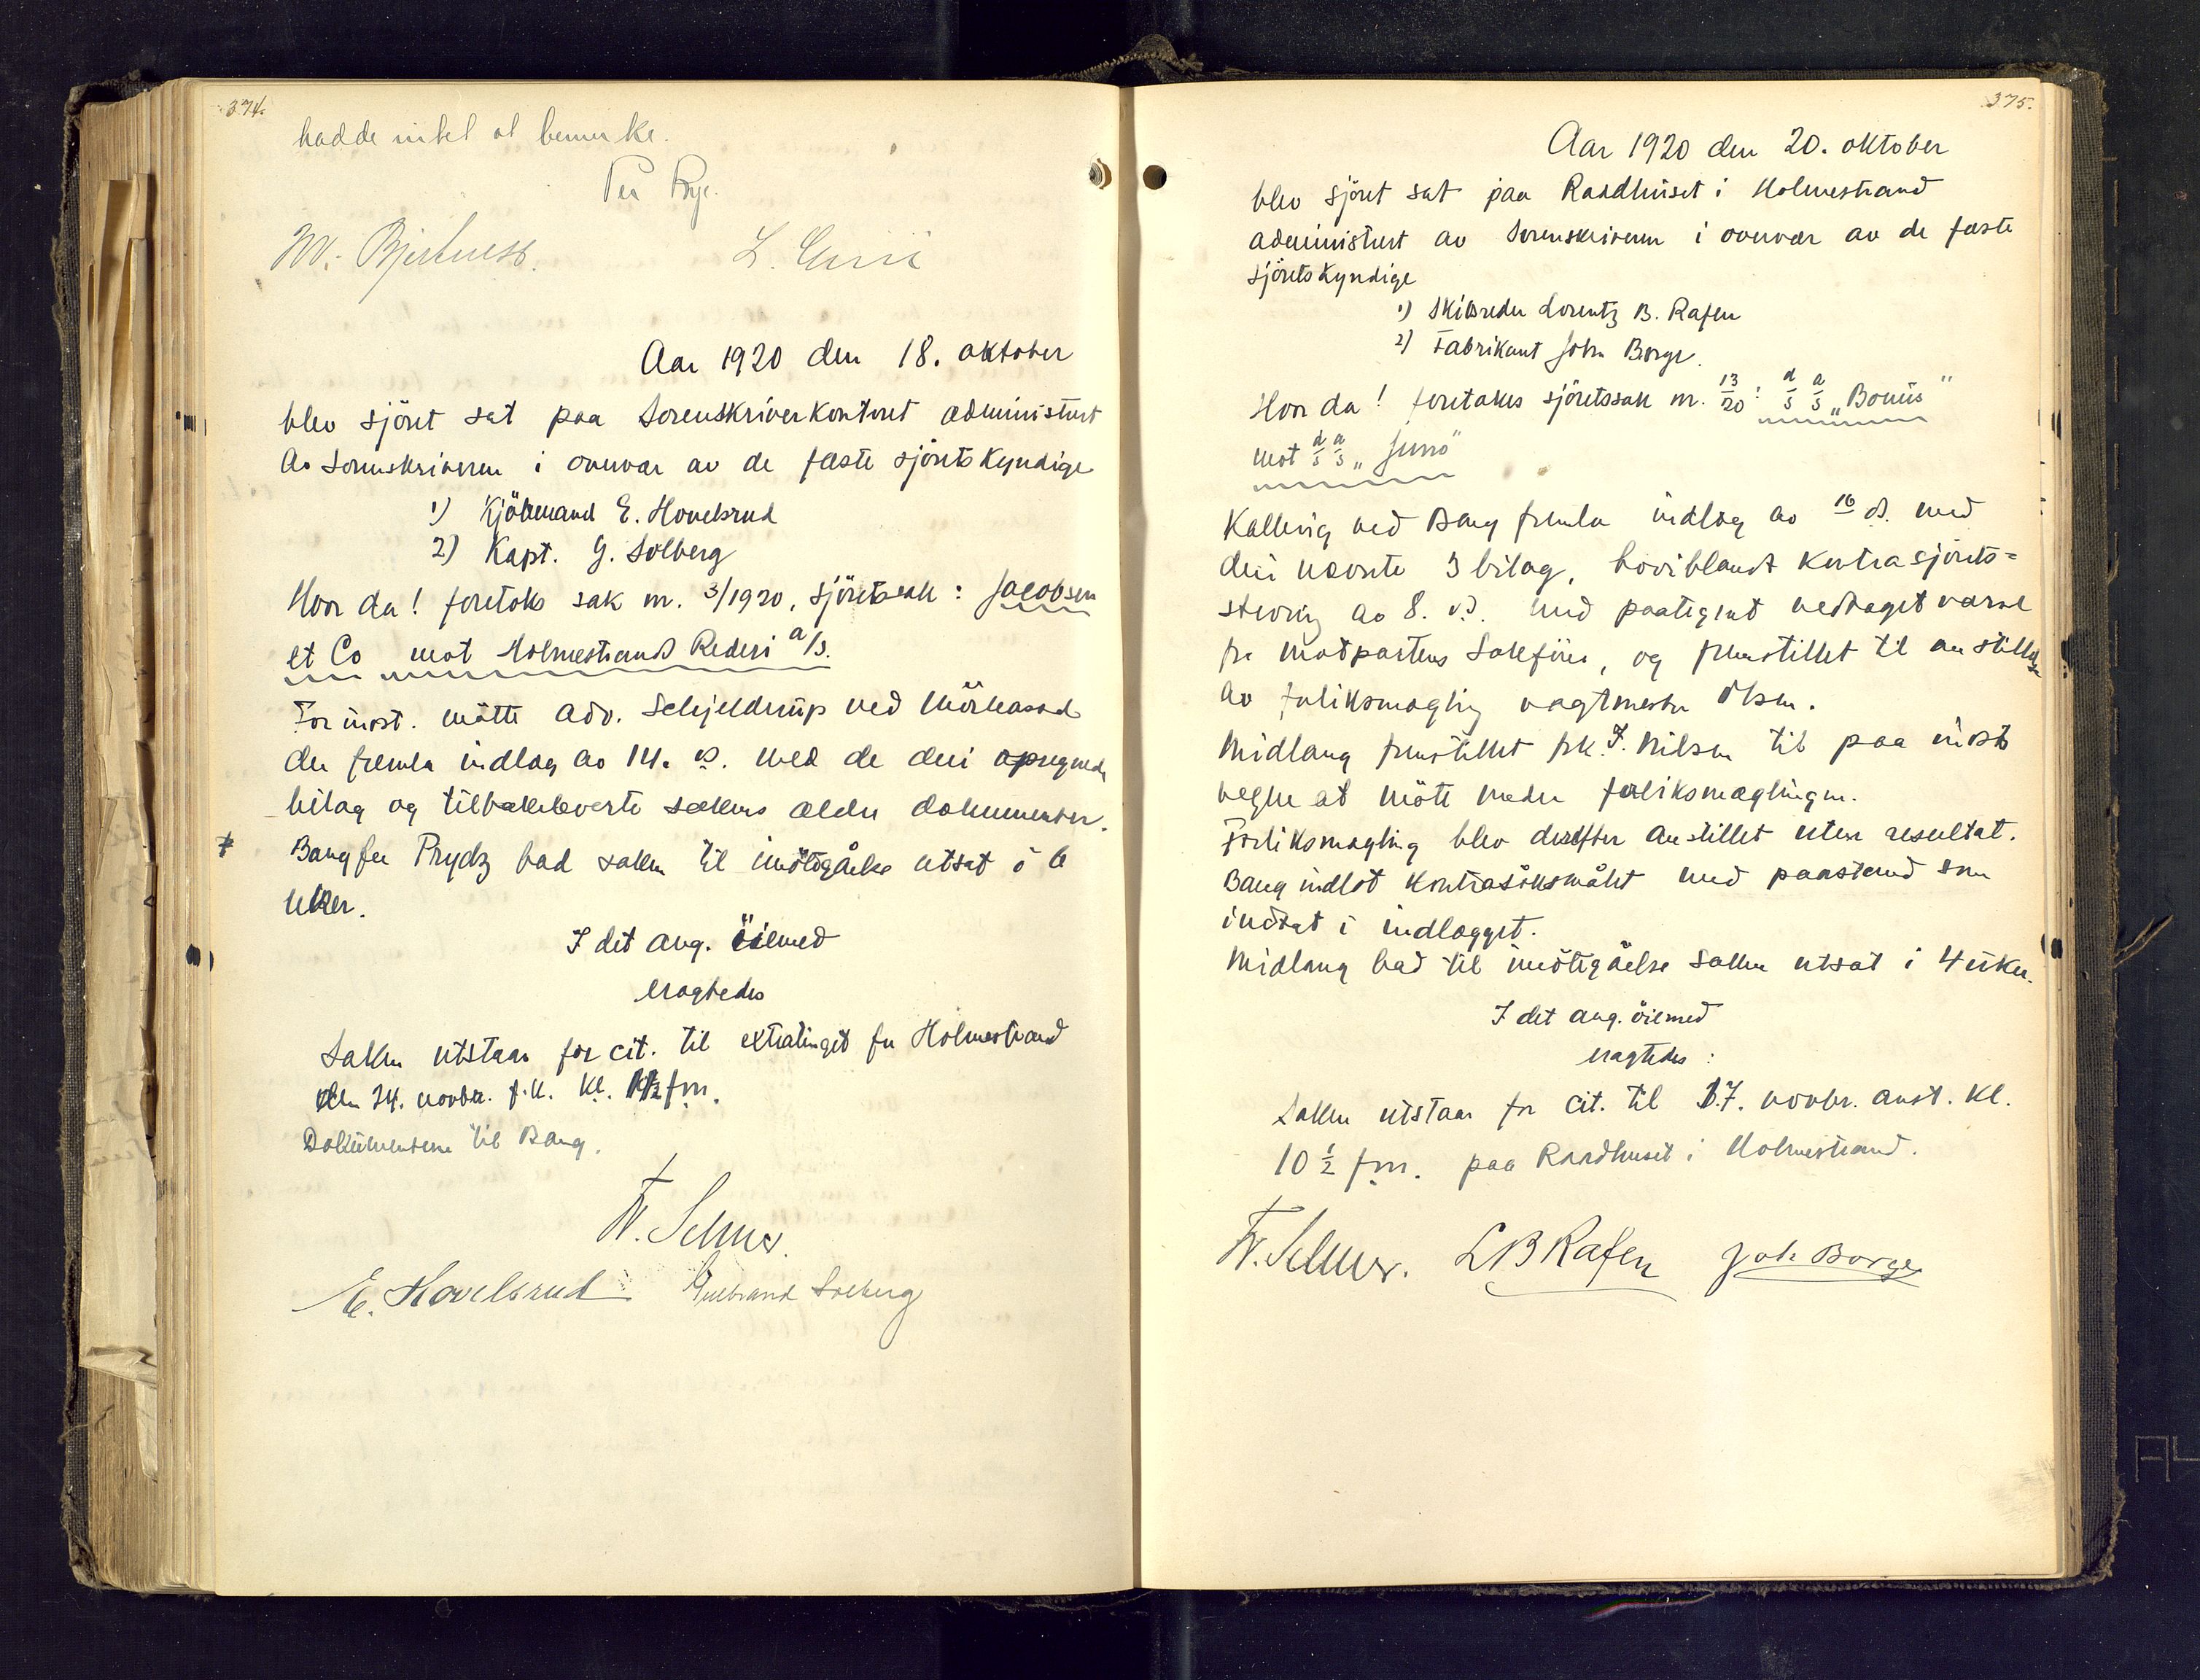 374.
hadde intet at bemerke.
Per Rye.
W. Bjertness.
Aar 1920 den 18. oktober
blev sjöret sat paa Sorenskriverkontoret administrert
av Sorenskriveren i overvær av de faste sjöretskyndige
1) Kjöbmand E. Hovelsrud
2) Kapt. G. Solberg
Hvor da! foretoks sak nr. 3/1920, sjöretssak: Jacobsen
et Co mot Holmestrand Rederi a/s.
For indst. mötte adv. Schjelderup ved
der fremla indlæg av 14. ds. med de deri opregnede
bilag og tilbakeleverte sakens ældre dokumenter.
Bang for Prydz bad saken til imötegåelse utsat i 6
uker.
I det ang. öiemed
eragtedes
Saken utstaar for cit. til extratinget for Holmestrand
den 24. novbr. f.k. kl. fm.
Dokumenterne til Bang.
W. Selmer.
E. Hovelsrud Gulbrand Solberg
375.
Aar 1920 den 20. oktober
blev sjöret sat paa Raadhuset i Holmestrand
administrert av Sorenskriveren i overvær av de faste
sjöretskyndige
1) Skibsreder Lorentz B. Rafen
2) Fabrikant John Borge.
Hvor da! foretokes sjöretssak nr. 13/20: d/s a/s „Bonus"
mot d/s a/s „Juno"
Kallevig ved Bang fremla indlæg av 16 ds. med
deri nævnte 3 bilag, hvoriblandt kontrasjörets=
stevning av 8. ds. med paategnet vedtaget varsel
fra motpartens Sakförer, og fremstillet til anstillelse
av forliksmægling vagtmester Olsen.
Midlang fremstillet frk. I. Nilsen til paa indst
vegne at möte under forliksmæglingen.
Forliksmægling blev derefter anstillet uten resultat.
Bang indlot kontrasöksmålet med paastand som
indtat i indlægget.
Midlang bad til imötegåelse saken utsat i 4 uker.
I det ang. öiemed
eragtedes:
Saken utstaar for cit. til 17. novbr. anst. kl.
10 ½ fm. paa Raadhuset i Holmestrand.
W. Selmer. L B Rafen Joh Borge